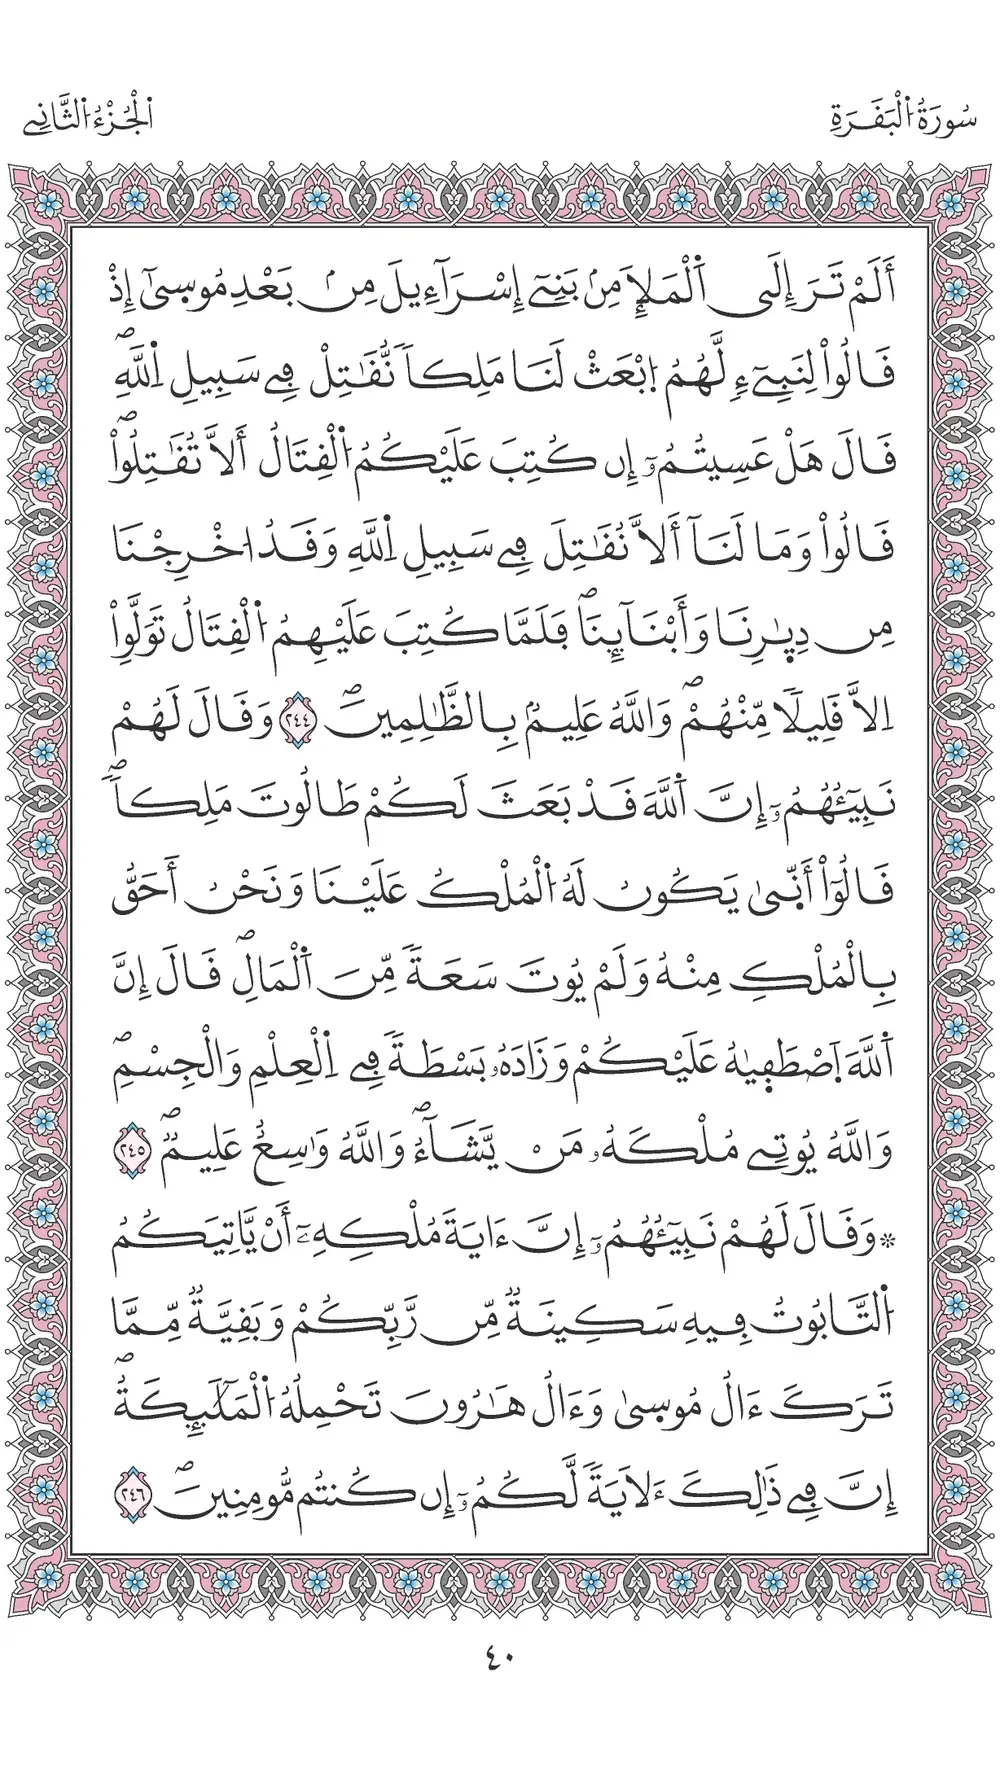 سُورَةُ اُ۬لْبَقَرَةِ
اُ۬لْجُزْءُ اُ۬لثَّانِے
أَلَمْ تَرَ إِلَى اَ۬لْمَلَإِ مِنۢ بَنِےٓ إِسْرَآءِيلَ مِنۢ بَعْدِ مُوس۪ىٰٓ إِذْ
قَالُواْ لِنَبِےٓءٖ لَّهُمُ اُ۪بْعَثْ لَنَا مَلِكاٗ نُّقَٰتِلْ فِے سَبِيلِ اِ۬للَّهِۖ
قَالَ هَلْ عَسِيتُمُۥٓ إِن كُتِبَ عَلَيْكُمُ اُ۬لْقِتَالُ أَلَّا تُقَٰتِلُواْۖ
قَالُواْ وَمَا لَنَآ أَلَّا نُقَٰتِلَ فِے سَبِيلِ اِ۬للَّهِ وَقَدُ ا۟خْرِجْنَا
مِن دِيٰ۪رِنَا وَأَبْنَآئِنَاۖ فَلَمَّا كُتِبَ عَلَيْهِمُ اُ۬لْقِتَالُ تَوَلَّوِاْ
اِلَّا قَلِيلاٗ مِّنْهُمْۖ وَاللَّهُ عَلِيمُۢ بِالظَّٰلِمِينَۖ ٢٤٤ وَقَالَ لَهُمْ
نَبِيٓـُٔهُمُۥٓ إِنَّ اَ۬للَّهَ قَدْ بَعَثَ لَكُمْ طَالُوتَ مَلِكاٗۖ
قَالُوٓاْ أَنّ۪ىٰ يَكُونُ لَهُ اُ۬لْمُلْكُ عَلَيْنَا وَنَحْنُ أَحَقُّ
بِالْمُلْكِ مِنْهُ وَلَمْ يُوتَ سَعَةٗ مِّنَ اَ۬لْمَالِۖ قَالَ إِنَّ
اَ۬للَّهَ اَ۪صْطَف۪يٰهُ عَلَيْكُمْ وَزَادَهُۥ بَسْطَةٗ فِے اِ۬لْعِلْمِ وَالْجِسْمِۖ
وَاللَّهُ يُوتِے مُلْكَهُۥ مَنْ يَّشَآءُۖ وَاللَّهُ وَٰسِعٌ عَلِيمٞۖ ٢٤٥
۞وَقَالَ لَهُمْ نَبِيٓـُٔهُمُۥٓ إِنَّ ءَايَةَ مُلْكِهِۦٓ أَنْ يَّاتِيَكُمُ
اُ۬لتَّابُوتُ فِيهِ سَكِينَةٞ مِّن رَّبِّكُمْ وَبَقِيَّةٞ مِّمَّا
تَرَكَ ءَالُ مُوس۪ىٰ وَءَالُ هَٰرُونَ تَحْمِلُهُ اُ۬لْمَلَٰٓئِكَةُۖ
إِنَّ فِے ذَٰلِكَ ءَلَايَةٗ لَّكُمُۥٓ إِن كُنتُم مُّومِنِينَۖ ٢٤٦
٤٠